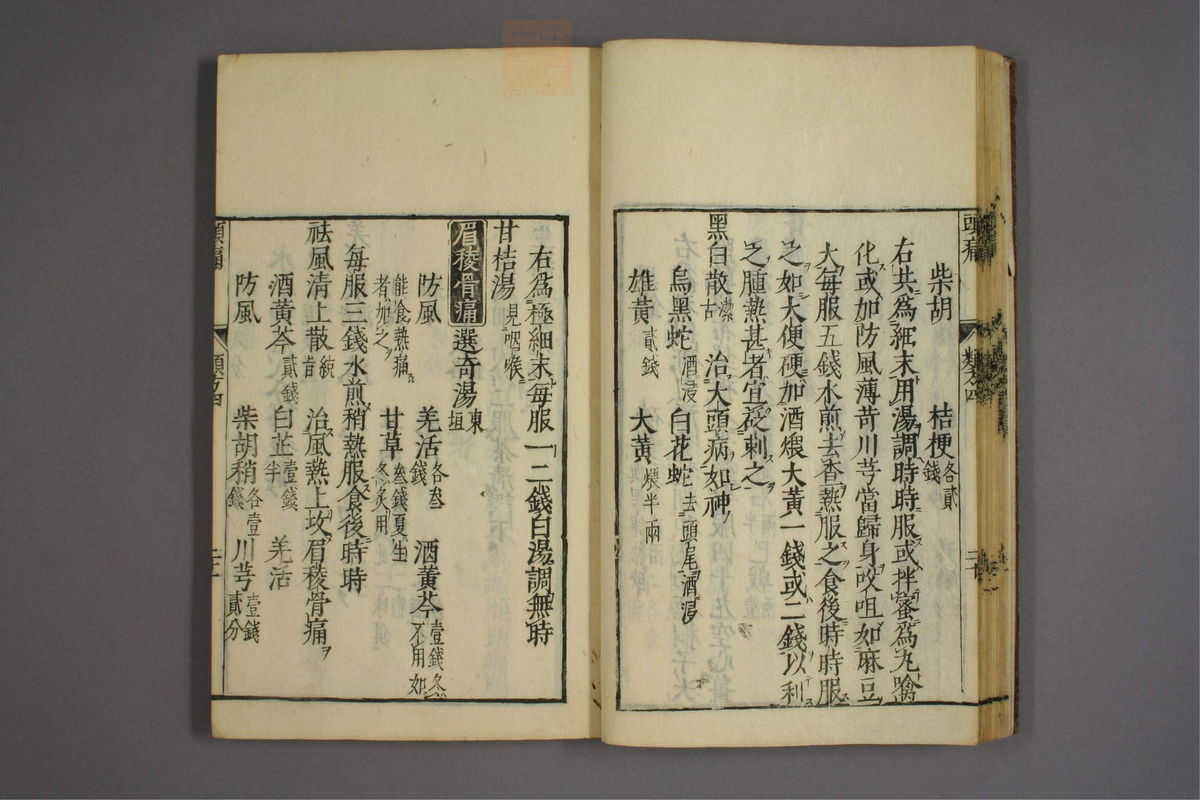 頭痛 類方四 二十
柴胡 桔梗各貳錢
右共爲細末用湯調時時服或拌蜜爲丸噙
化或如防風薄苛川芎當歸身㕮咀如麻豆
大每服五錢水煎去香熱服之食後時時服
之如大便硬加酒煨大黄一錢或二錢以利
之腫熱甚者宜砭刺之
黑白散潔古 治大頭病如神
烏黑蛇酒浸 白花蛇去頭尾酒浸
雄黄貳錢 大黄煨半兩
右爲極細末每服一二錢白湯調無時
甘桔湯見咽喉
眉稜骨痛 選奇湯東垣
防風 羌活各叁錢 酒黄芩壹錢冬不用如
能食熱痛者加之 甘草叁錢夏生冬炙用
每服三錢水煎稍熱服食後時時
祛風清上散統旨 治風熱上攻眉稜骨痛
酒黄芩貳錢 白芷壹錢半 羌活
防風 柴胡稍各壹錢 川芎壹錢貳分
頭痛 類方四